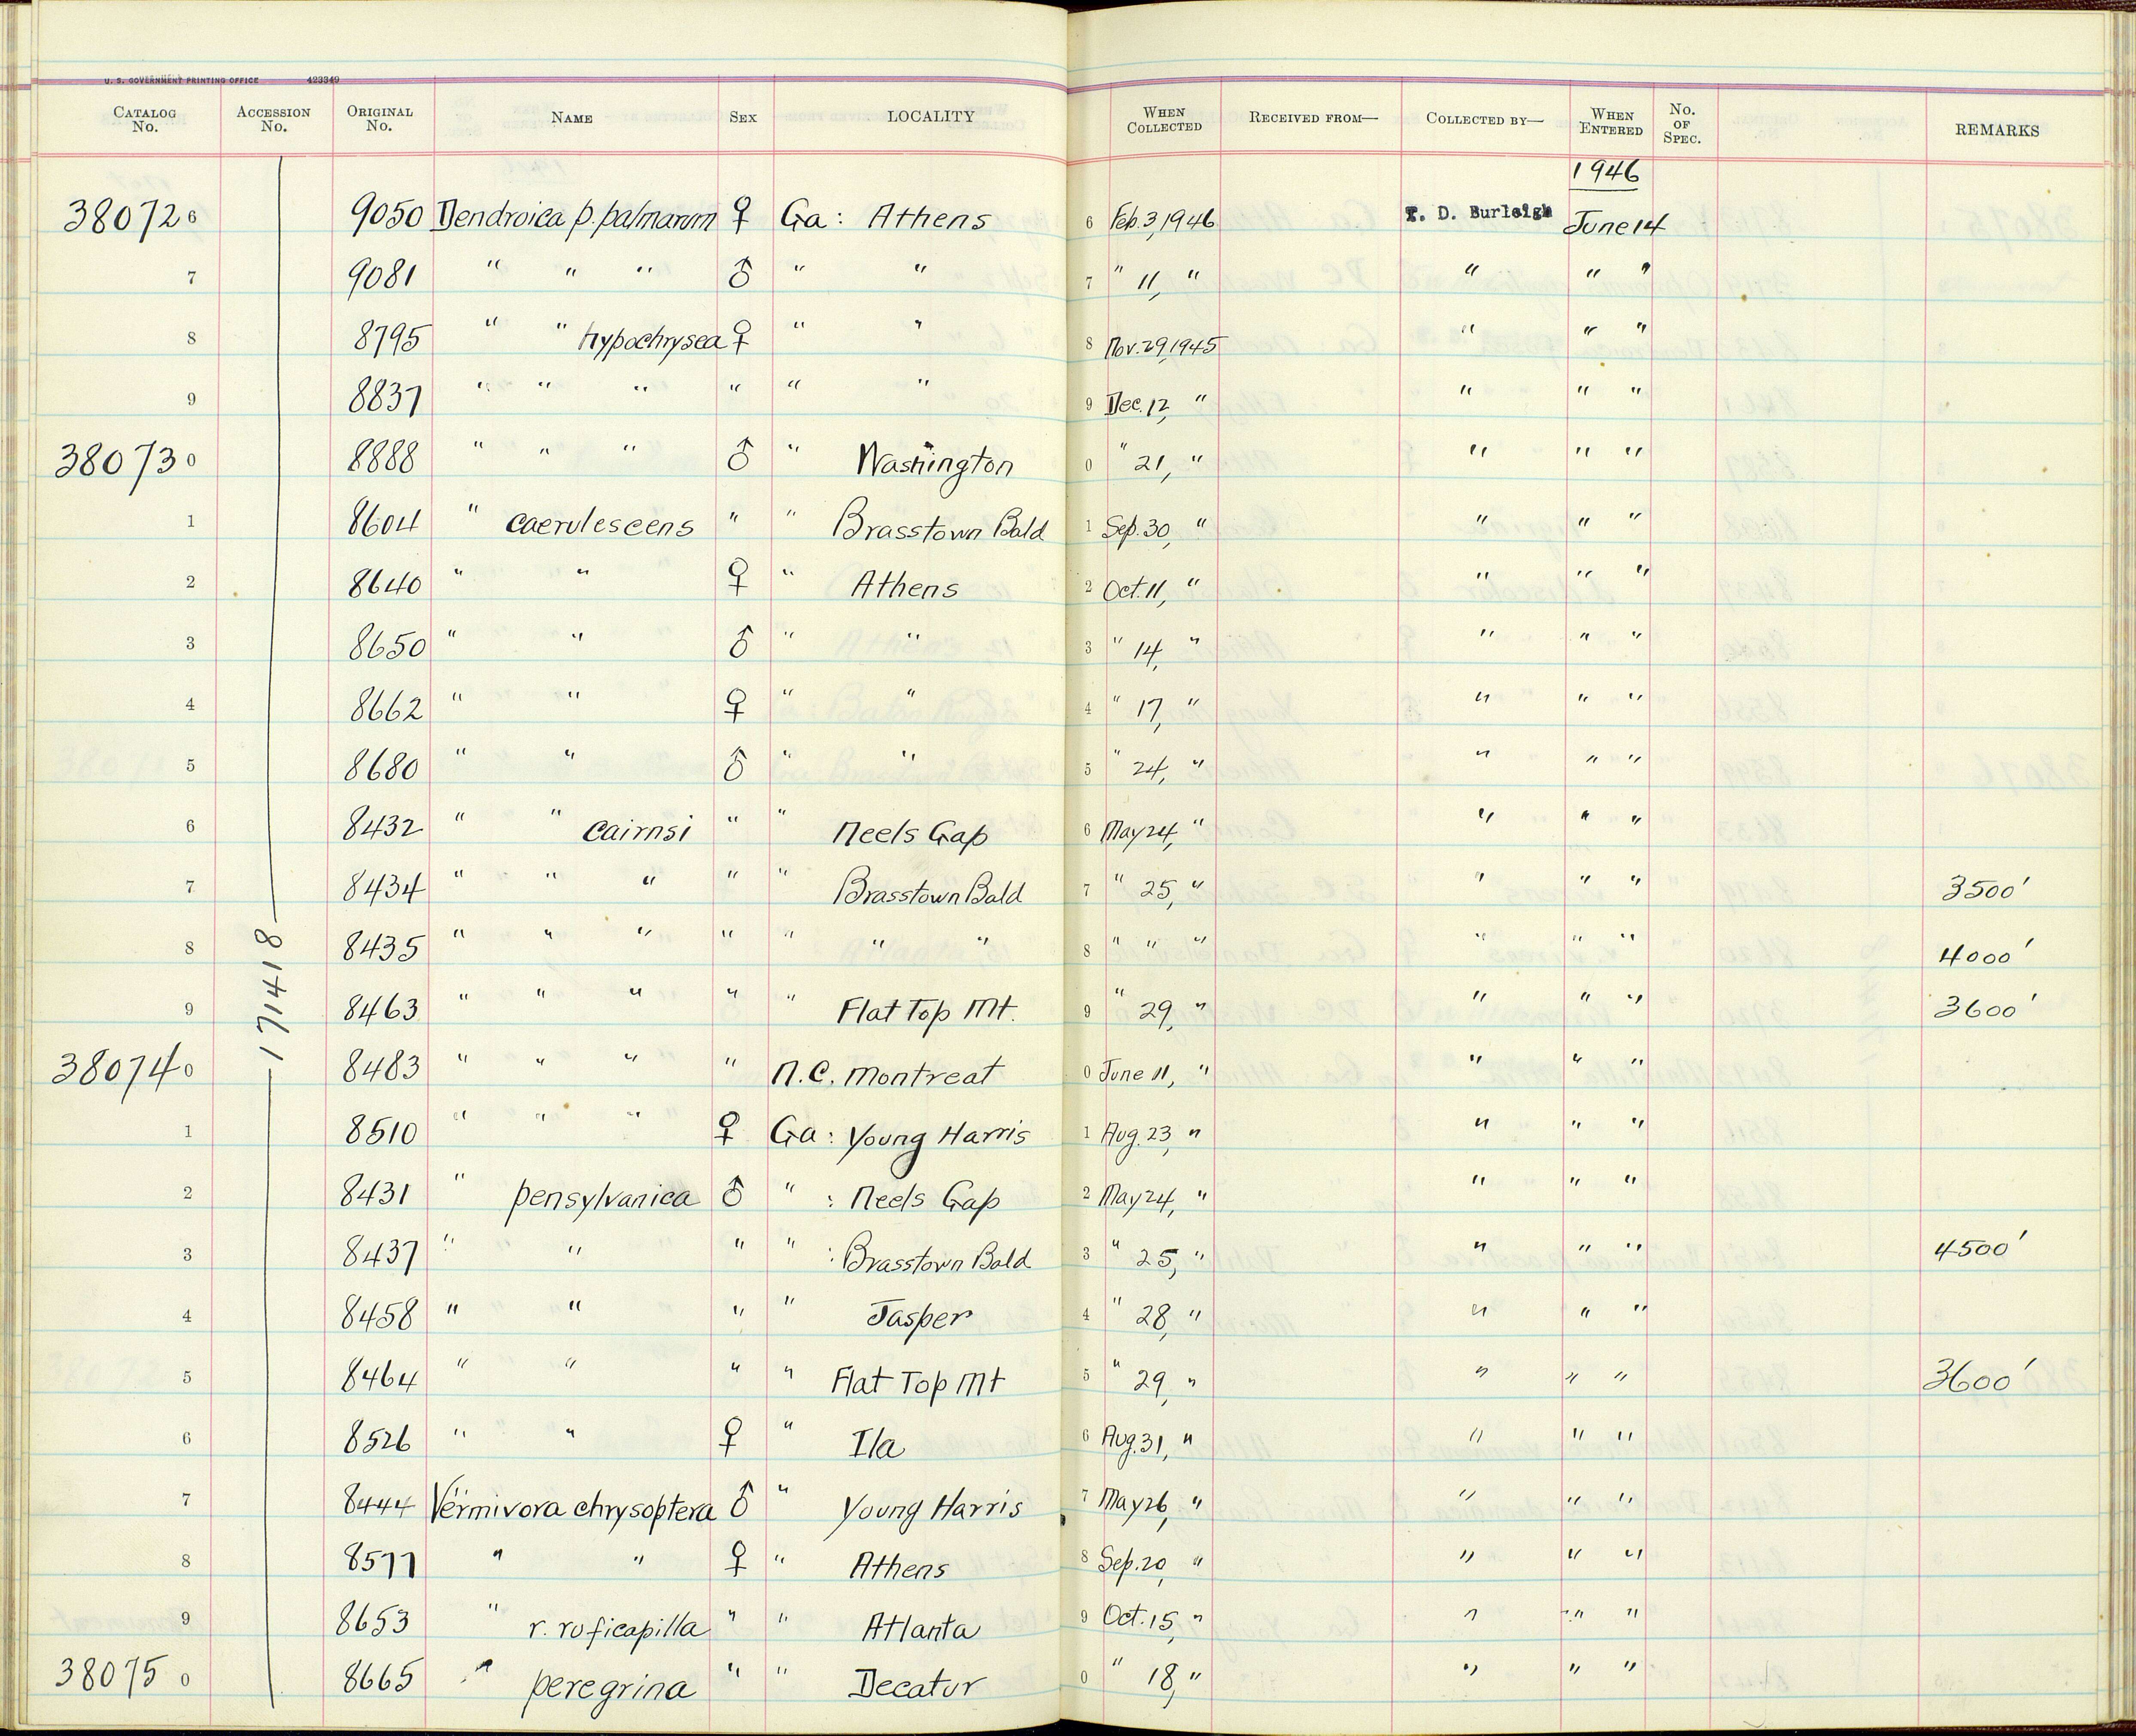 U. S. GOVERNMENT PRINTING OFFICE 423349
CATALOG No. ACCESSION No. ORIGINAL No. NAME SEX LOCALITY WHEN COLLECTED RECEIVED FROM— COLLECTED BY— WHEN ENTERED No. OF SPEC. REMARKS
1946
38072 6 9050 Dendroica p. palmarum ♀ Ga: Athens 6 Feb. 3, 1946 T. D. Burleigh June 14
7 9081 " " " ♂ " " 7 " 11, " " " "
8 8795 " " hypochrysea ♀ " " 8 Nov. 29, 1945 " " "
9 8837 " " " " " " 9 Dec. 12, " " " "
38073 0 8888 " " " ♂ " Washington 0 " 21, " " " "
1 8604 " caerulescens " " Brasstown Bald 1 Sep. 30, " " " "
2 8640 " " ♀ " Athens 2 Oct. 11, " " " "
3 8650 " " ♂ " " 3 " 14, " " " "
4 8662 " " ♀ " " 4 " 17, " " " "
5 8680 " " ♂ " " 5 " 24, " " " "
6 8432 " " cairnsi " " Neels Gap 6 May 24, " " " "
7 8434 " " " " " Brasstown Bald 7 " 25, " " " " 3500'
8 8435 " " " " " " " 8 " " " " " " 4000'
9 8463 " " " " " Flat Top Mt. 9 " 29, " " " " 3600'
171418
38074 0 8483 " " " " N.C. Montreat 0 June 11, " " " "
1 8510 " " " ♀ Ga: Young Harris 1 Aug. 23, " " " "
2 8431 " pensylvanica ♂ " : Neels Gap 2 May 24, " " " "
3 8437 " " " " : Brasstown Bald 3 " 25, " " " " 4500'
4 8458 " " " " Jasper 4 " 28, " " " "
5 8464 " " " " Flat Top Mt 5 " 29, " " " " 3600'
6 8526 " " ♀ " Ila 6 Aug. 31, " " " "
7 8444 Vermivora chrysoptera ♂ " Young Harris 7 May 26, " " " "
8 8577 " " ♀ " Athens 8 Sep. 20, " " " "
9 8653 " r. ruficapilla " " Atlanta 9 Oct. 15, " " " "
38075 0 8665 " peregrina " " Decatur 0 " 18, " " " "